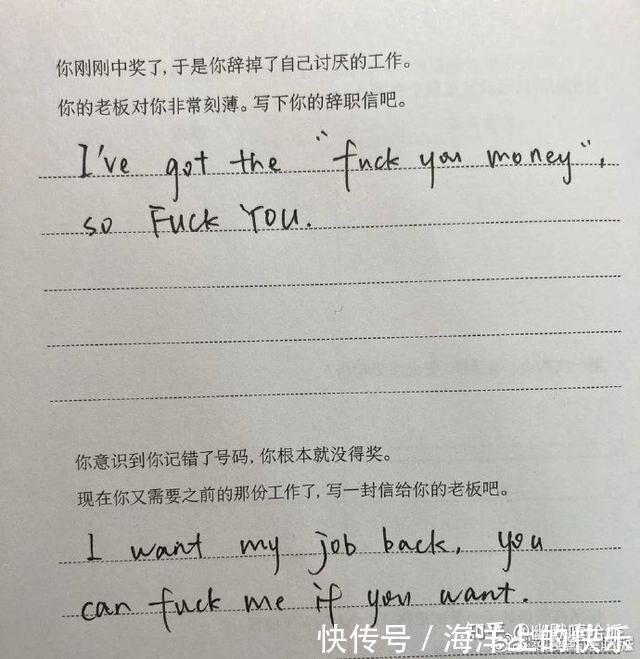 你刚刚中奖了,于是你辞掉了自己讨厌的工作。
你的老板对你非常刻薄。写下你的辞职信吧。
I've got the "fuck you money",
so FUCK YOU.
你意识到你记错了号码,你根本就没得奖。
现在你又需要之前的那份工作了,写一封信给你的老板吧。
I want my job back, you
can fuck me if you want.
知乎
快传号/海洋上的快乐